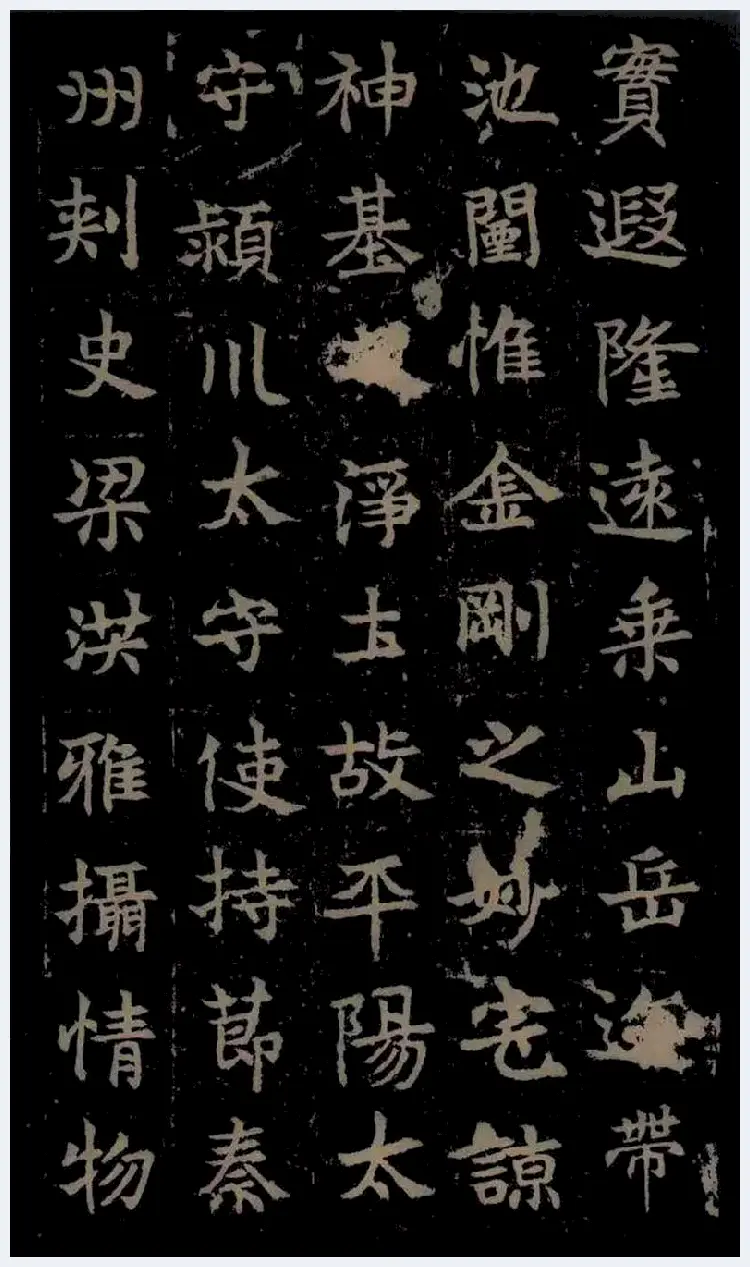 實遐隆遠乗山岳帶
池闉惟金剛之妙宅諒
神基淨土故平陽太
守潁川太守使持節秦
州刾史梁洪雅攝情物